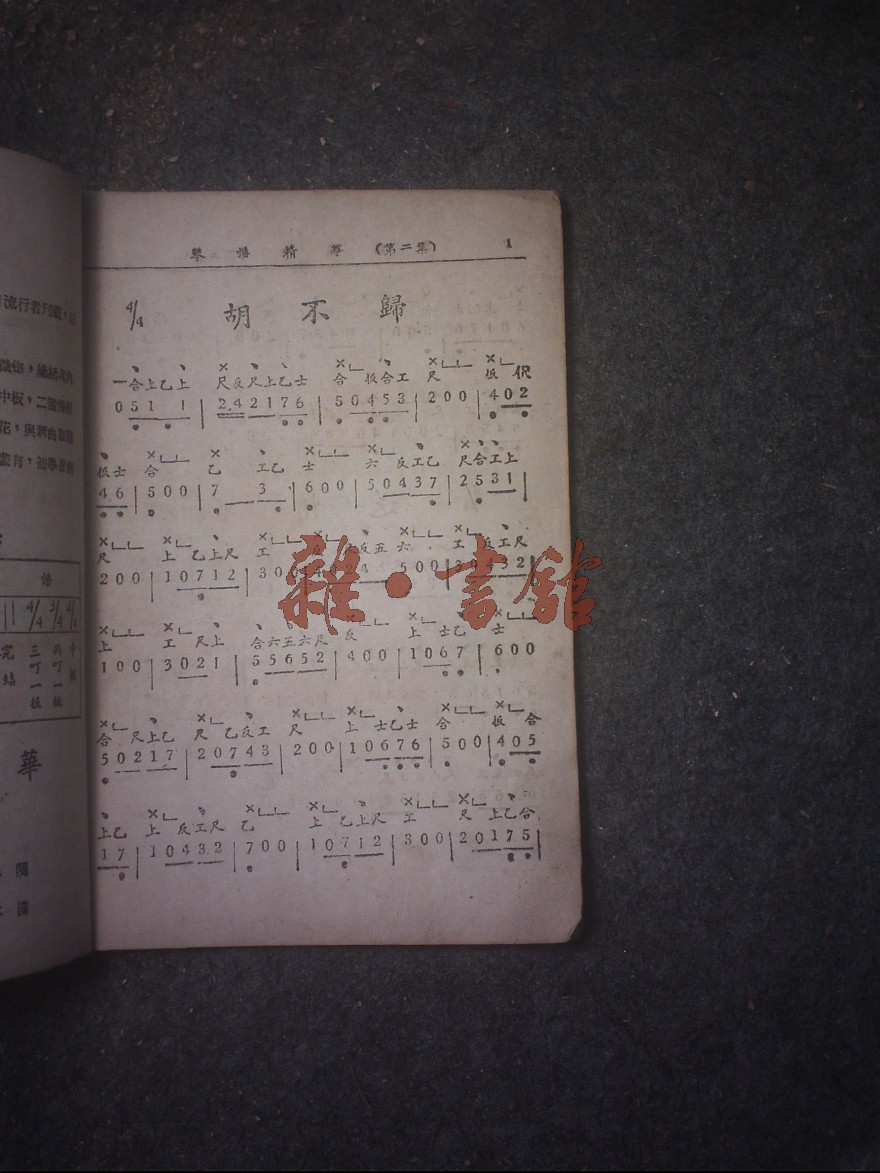 流行者刊載
中板，二簧慢板
譜
4/4 3/4
三叮一板
兩叮一板
完結
華
琴譜精華（第二集） 1
4/4 胡不歸
一合上乙上 尺反尺上乙士 合 扳合工 尺 扳伬
0 5 1 1 | 2 4 2 1 7 6 | 5 0 4 5 3 | 2 0 0 | 4 0 2
扳士 合 乙 工乙 士 六 反工乙 尺合工上
4 6 | 5 0 0 | 7 3 | 6 0 0 | 5 0 4 3 7 | 2 5 3 1 |
尺 上 乙上尺 工 反 反五六 工 反工尺
2 0 0 | 1 0 7 1 2 | 3 0 0 | 5 0 0 | 3 0 4 3 2 |
雜·書館
上 工 尺上 合六五六尺 反 上 士乙 士
1 0 0 | 3 0 2 1 | 5 5 6 5 2 | 4 0 0 | 1 0 6 7 | 6 0 0
合 尺上乙 尺 乙反工 尺 上 士乙士 合 扳 合
5 0 2 1 7 | 2 0 7 4 3 | 2 0 0 | 1 0 6 7 6 | 5 0 0 | 4 0 5
上乙 上 反工尺 乙 上 乙上尺 工 尺 上乙合
1 7 | 1 0 4 3 2 | 7 0 0 | 1 0 7 1 2 | 3 0 0 | 2 0 1 7 5 |